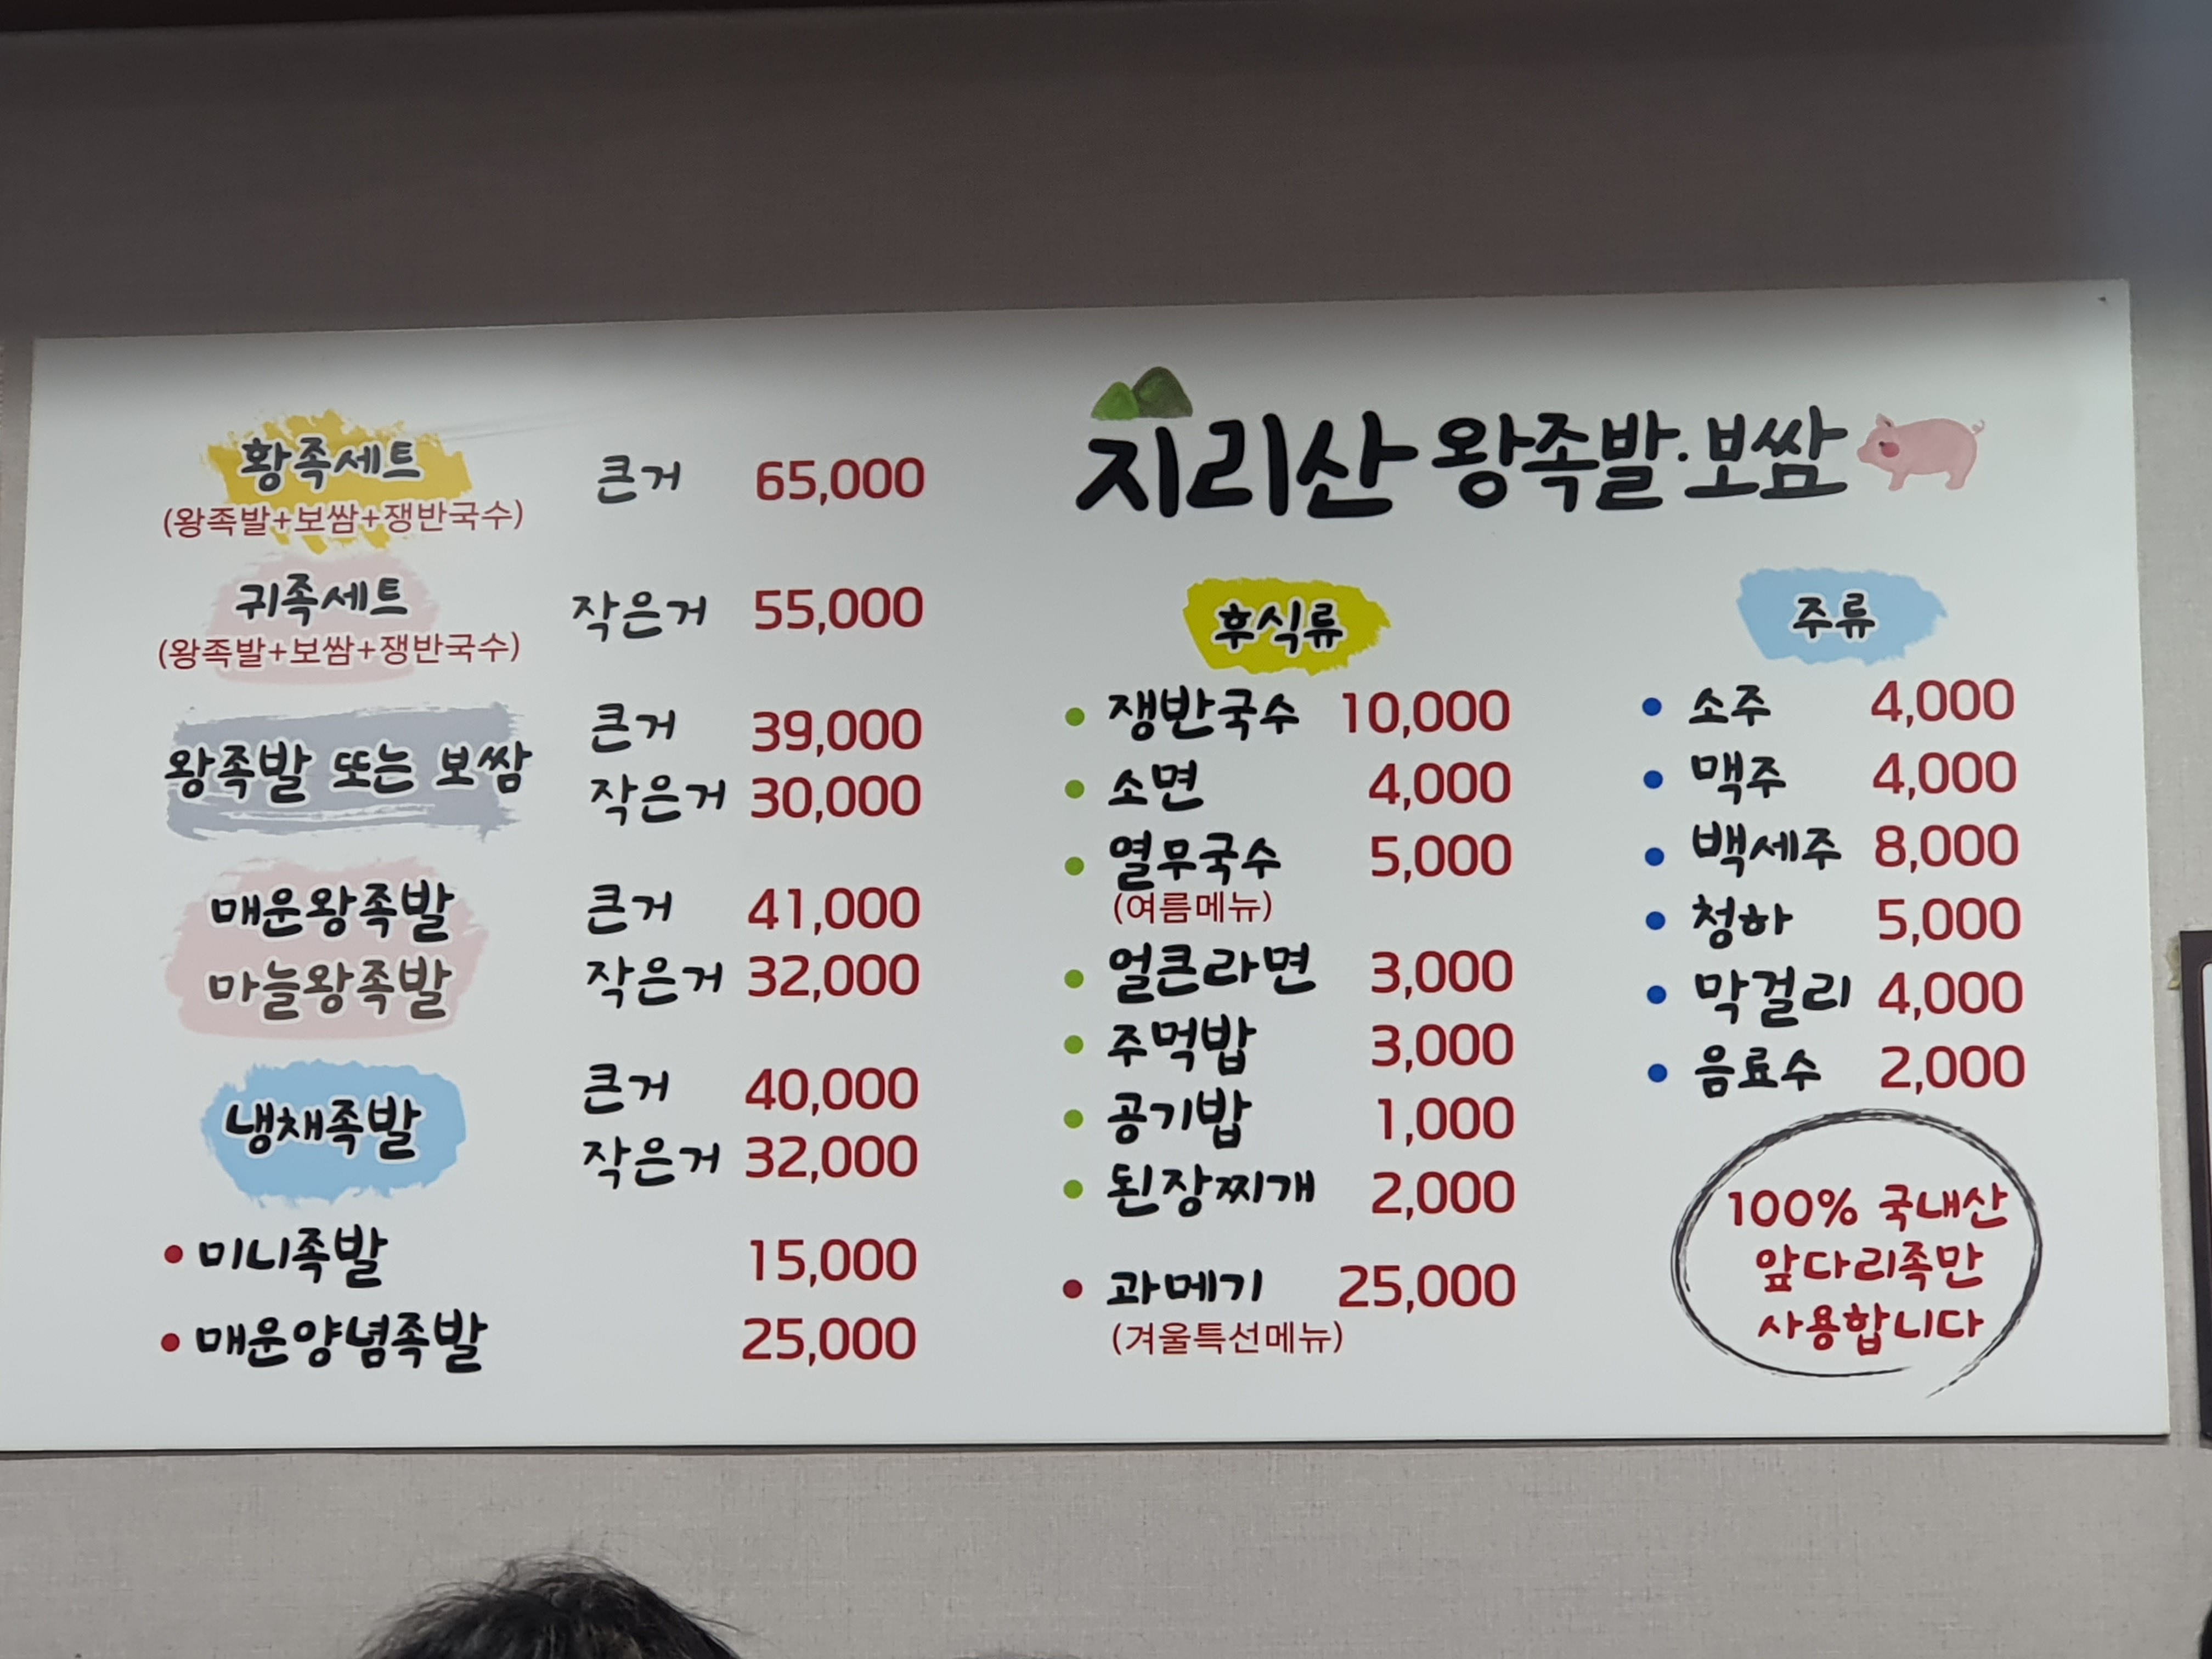 황족세트 큰거 65,000
(왕족발+보쌈+쟁반국수)
귀족세트 작은거 55,000
(왕족발+보쌈+쟁반국수)
왕족발 또는 보쌈
큰거 39,000
작은거 30,000
매운왕족발 큰거 41,000
마늘왕족발 작은거 32,000
냉채족발
큰거 40,000
작은거 32,000
• 미니족발 15,000
• 매운양념족발 25,000
지리산 왕족발·보쌈
후식류
• 쟁반국수 10,000
• 소면 4,000
• 열무국수 5,000
(여름메뉴)
• 얼큰라면 3,000
• 주먹밥 3,000
• 공기밥 1,000
• 된장찌개 2,000
• 과메기 25,000
(겨울특선메뉴)
주류
• 소주 4,000
• 맥주 4,000
• 백세주 8,000
• 청하 5,000
• 막걸리 4,000
• 음료수 2,000
100% 국내산
앞다리족만
사용합니다